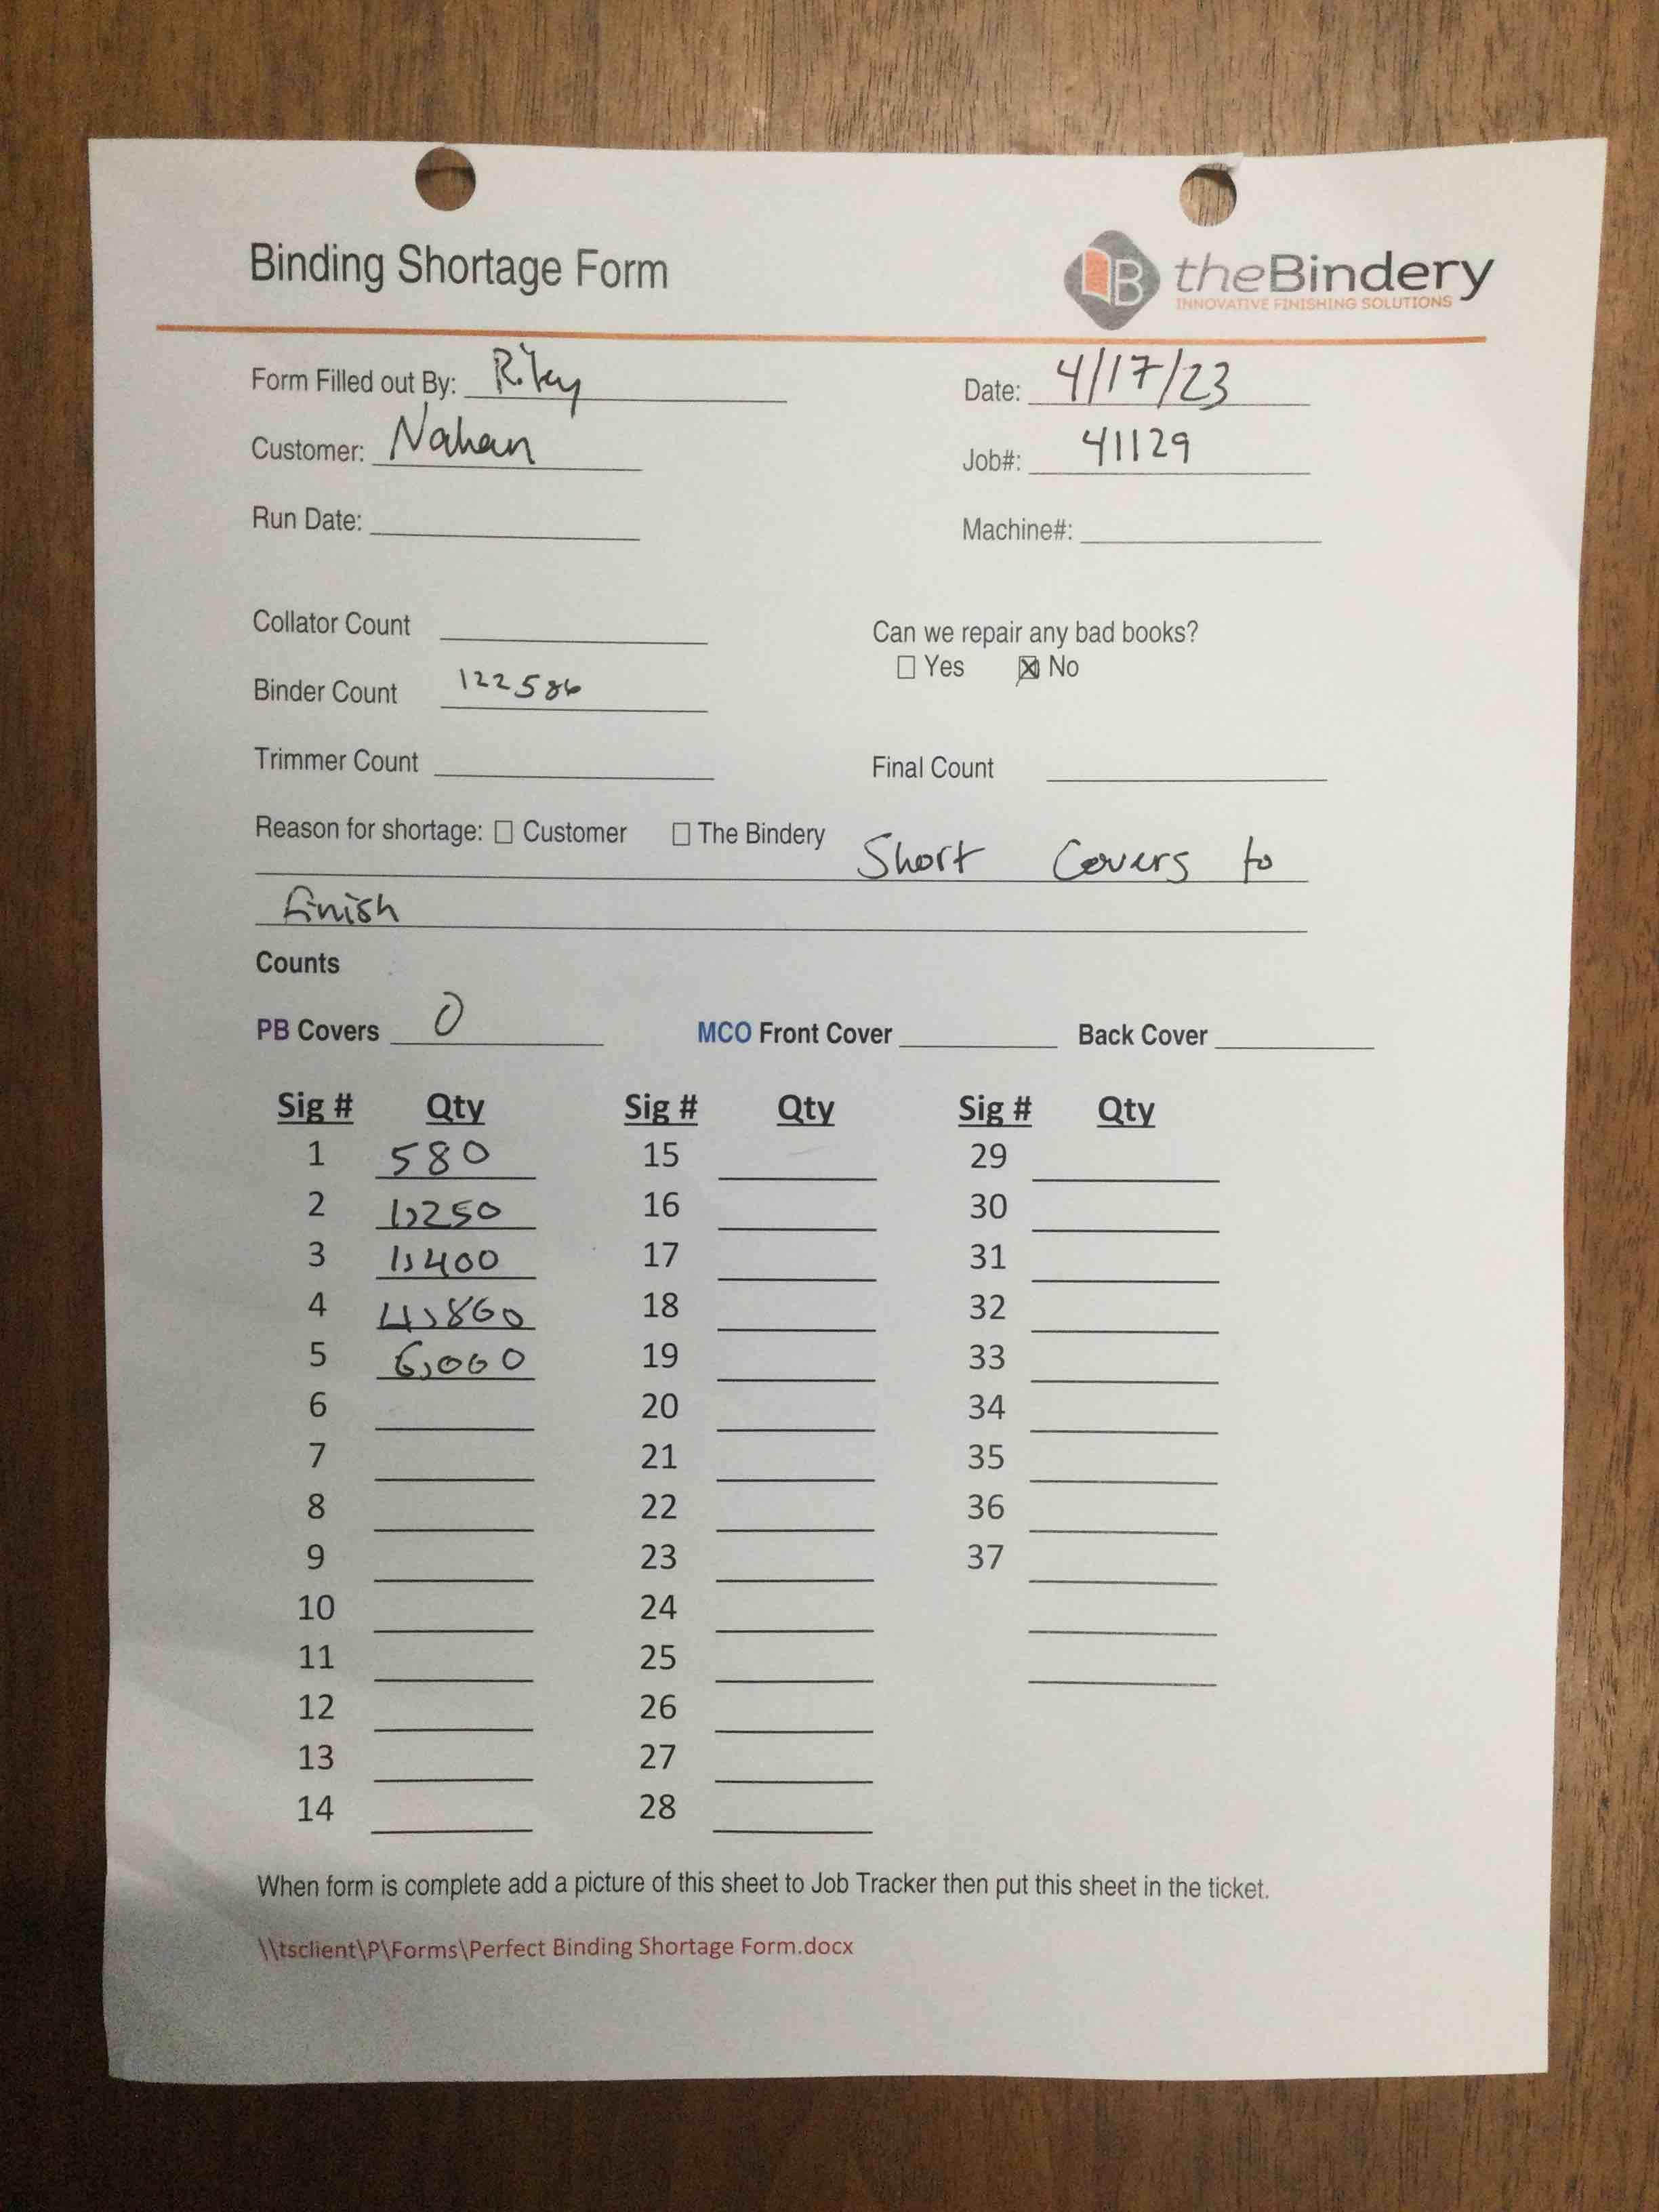 Binding Shortage Form
theBindery
INNOVATIVE FINISHING SOLUTIONS
Form Filled out By: Riley Date: 4/17/23
Customer: Nahan Job#: 41129
Run Date: Machine#:
Collator Count Can we repair any bad books?
☐ Yes ☒ No
Binder Count 122586
Trimmer Count Final Count
Reason for shortage: ☐ Customer ☐ The Bindery Short Covers to
finish
Counts
PB Covers 0 MCO Front Cover Back Cover
Sig # Qty Sig # Qty Sig # Qty
1 580 15 29
2 1,250 16 30
3 1,400 17 31
4 4,860 18 32
5 6,000 19 33
6 20 34
7 21 35
8 22 36
9 23 37
10 24
11 25
12 26
13 27
14 28
When form is complete add a picture of this sheet to Job Tracker then put this sheet in the ticket.
\\tsclient\P\Forms\Perfect Binding Shortage Form.docx